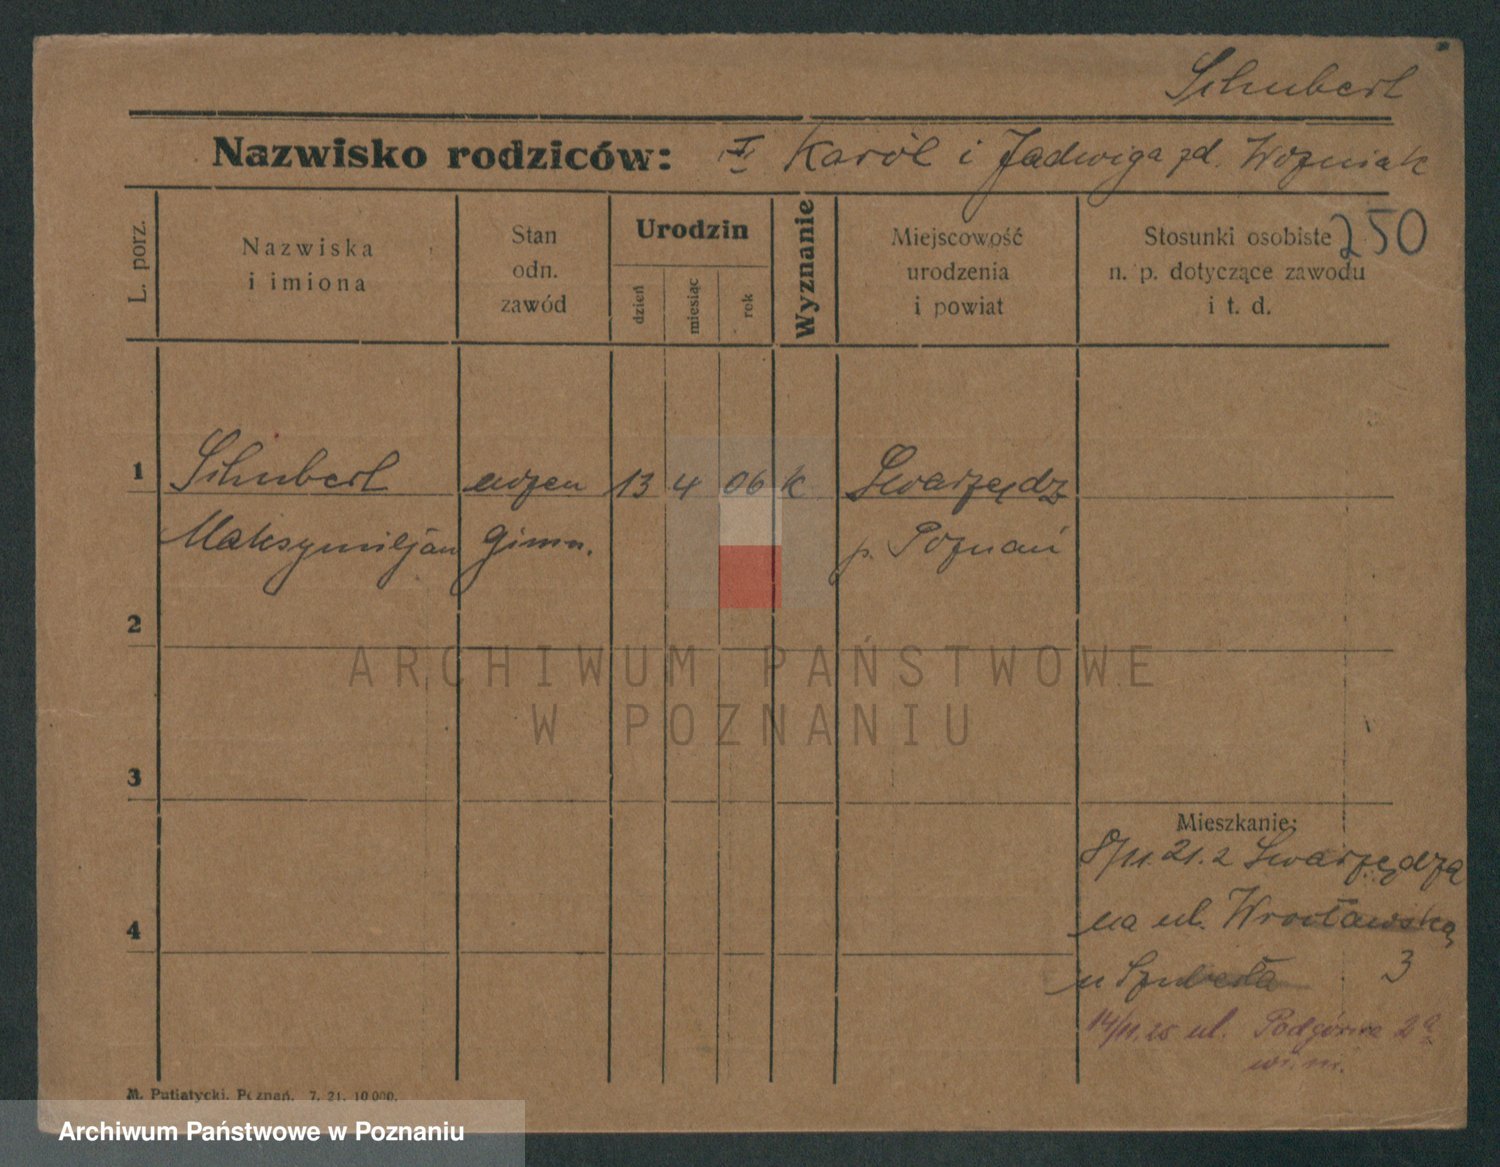 Schubert
Nazwisko rodziców: Karól i Jadwiga zd. Wozniak
250
L. porz.
Nazwiska
i imiona
Stan
odn.
zawód
Urodzin
dzień
miesiąc
rok
Wyznanie
Miejscowość
urodzenia
i powiat
Stosunki osobiste
n. p. dotyczące zawodu
i t. d.
1 Schubert uczen 13 4 06 k Swarzędz
Maksymiljan Gimn. p. Poznań
2
3
4
ARCHIWUM PAŃSTWOWE
W POZNANIU
Mieszkanie:
8/11.21. z Swarzędza
na ul. Wrocławską
u 3
14/11.25 ul. Podgórna 2a
M. Putiatycki. Poznań. 7. 21. 10000.
Archiwum Państwowe w Poznaniu